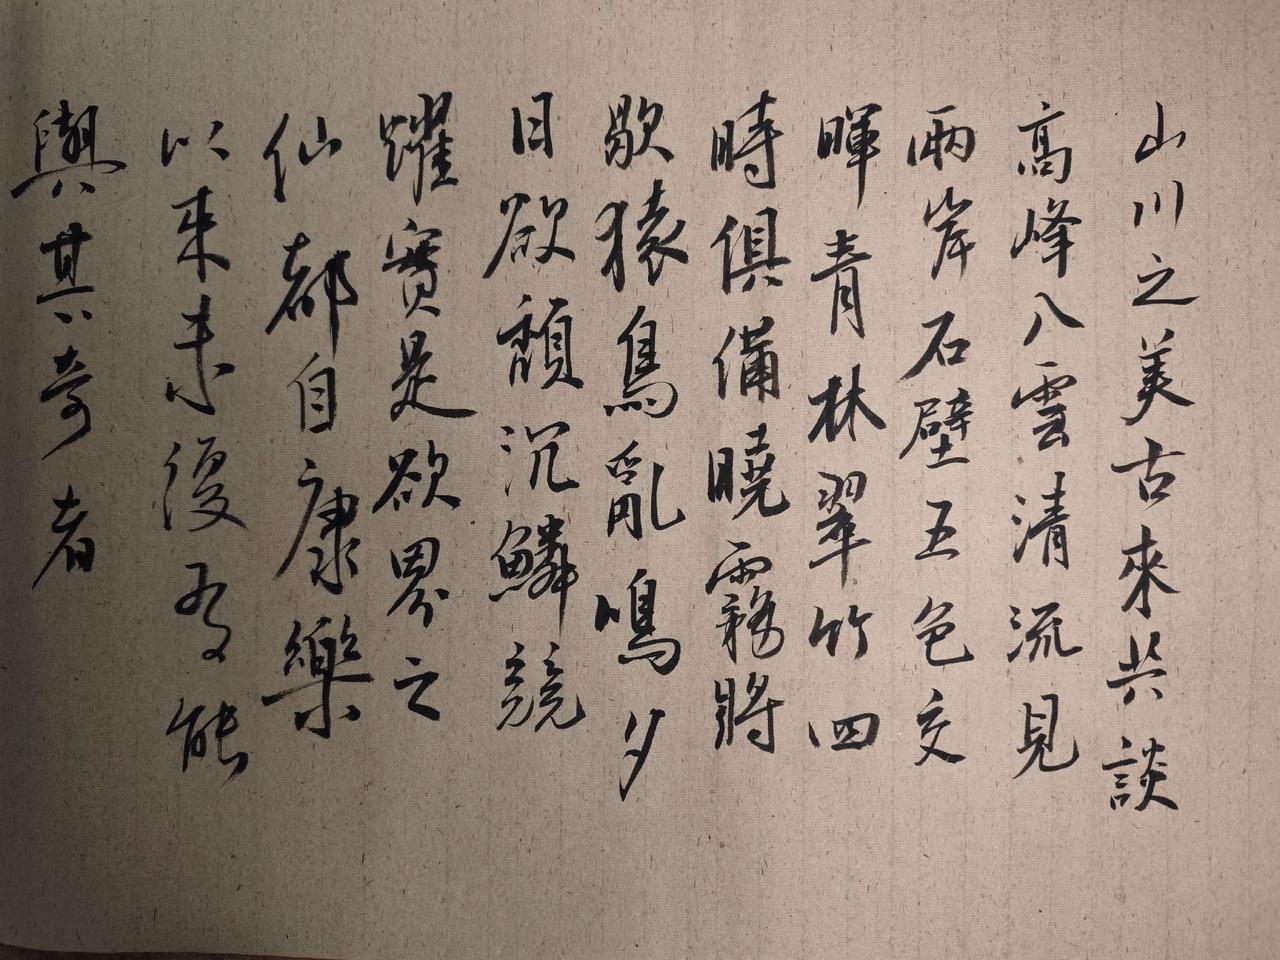 山川之美古來共談
高峰入雲清流見
兩岸石壁五色交
暉青林翠竹四
時俱備曉霧將
歇猿鳥亂鳴夕
日欲頹沉鱗競
躍實是欲界之
仙都自康樂
以來未復有能
與其奇者